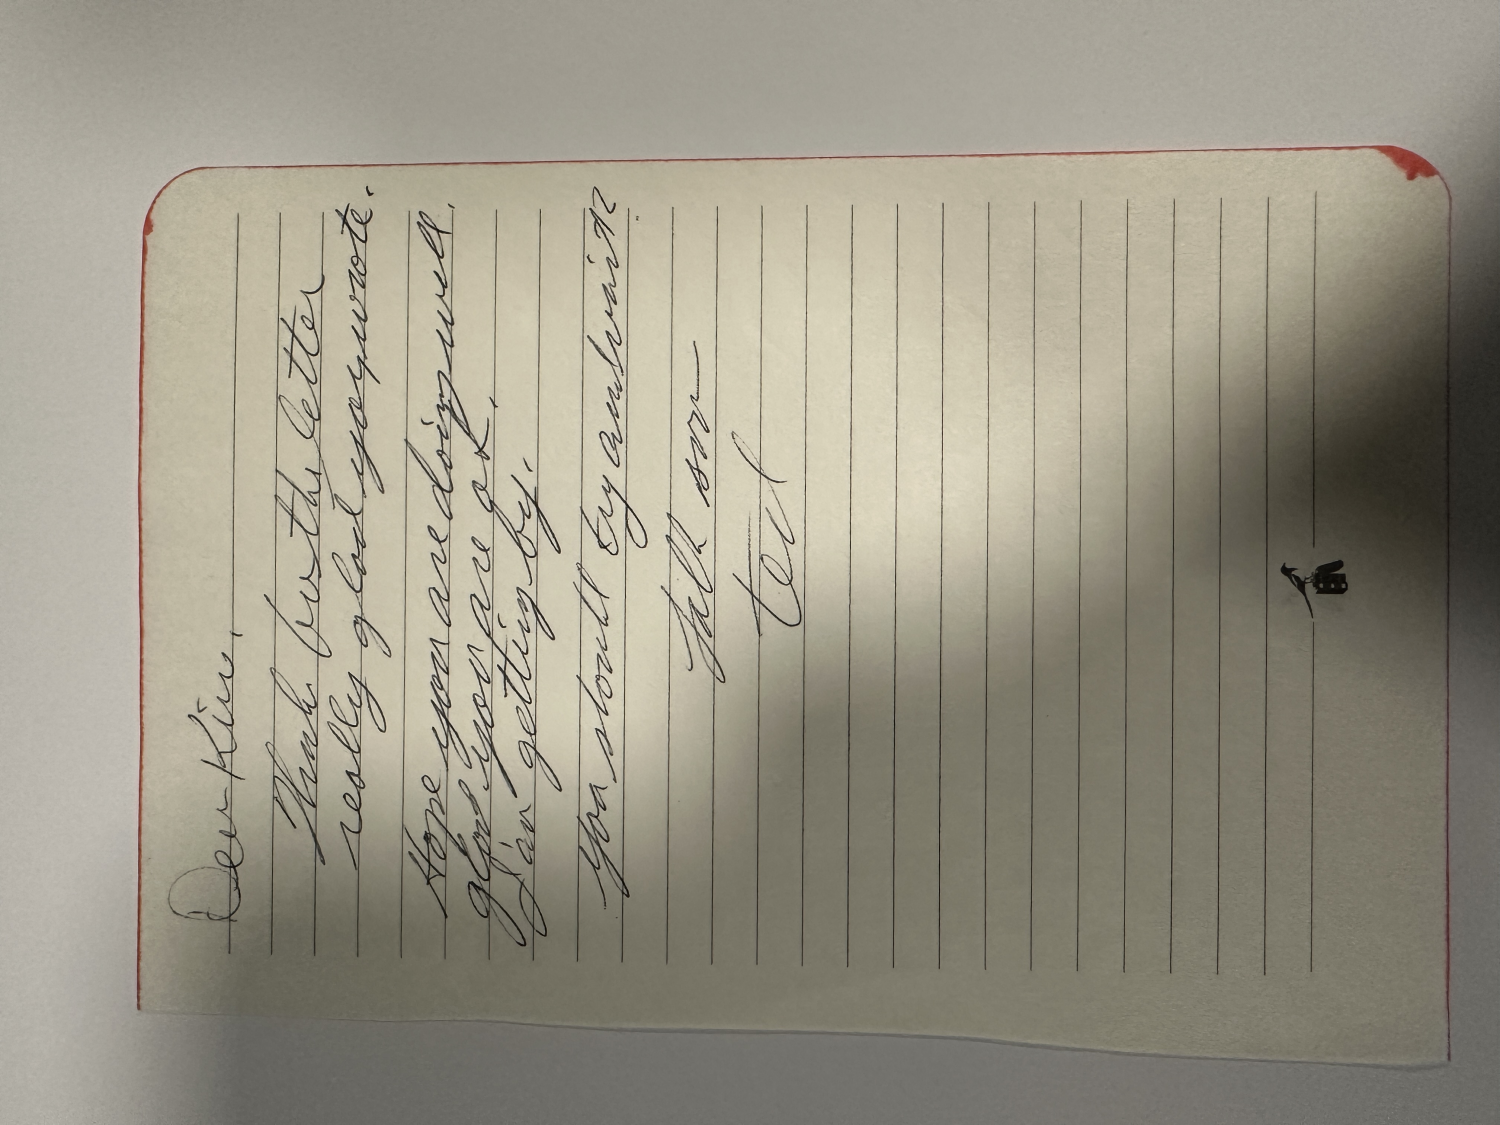 Dear Kim,
Thank for the letter
really glad you wrote.
Hope you are doing well.
glad you are ok.
I'm getting by.
You should try and
Talk soon
Ted